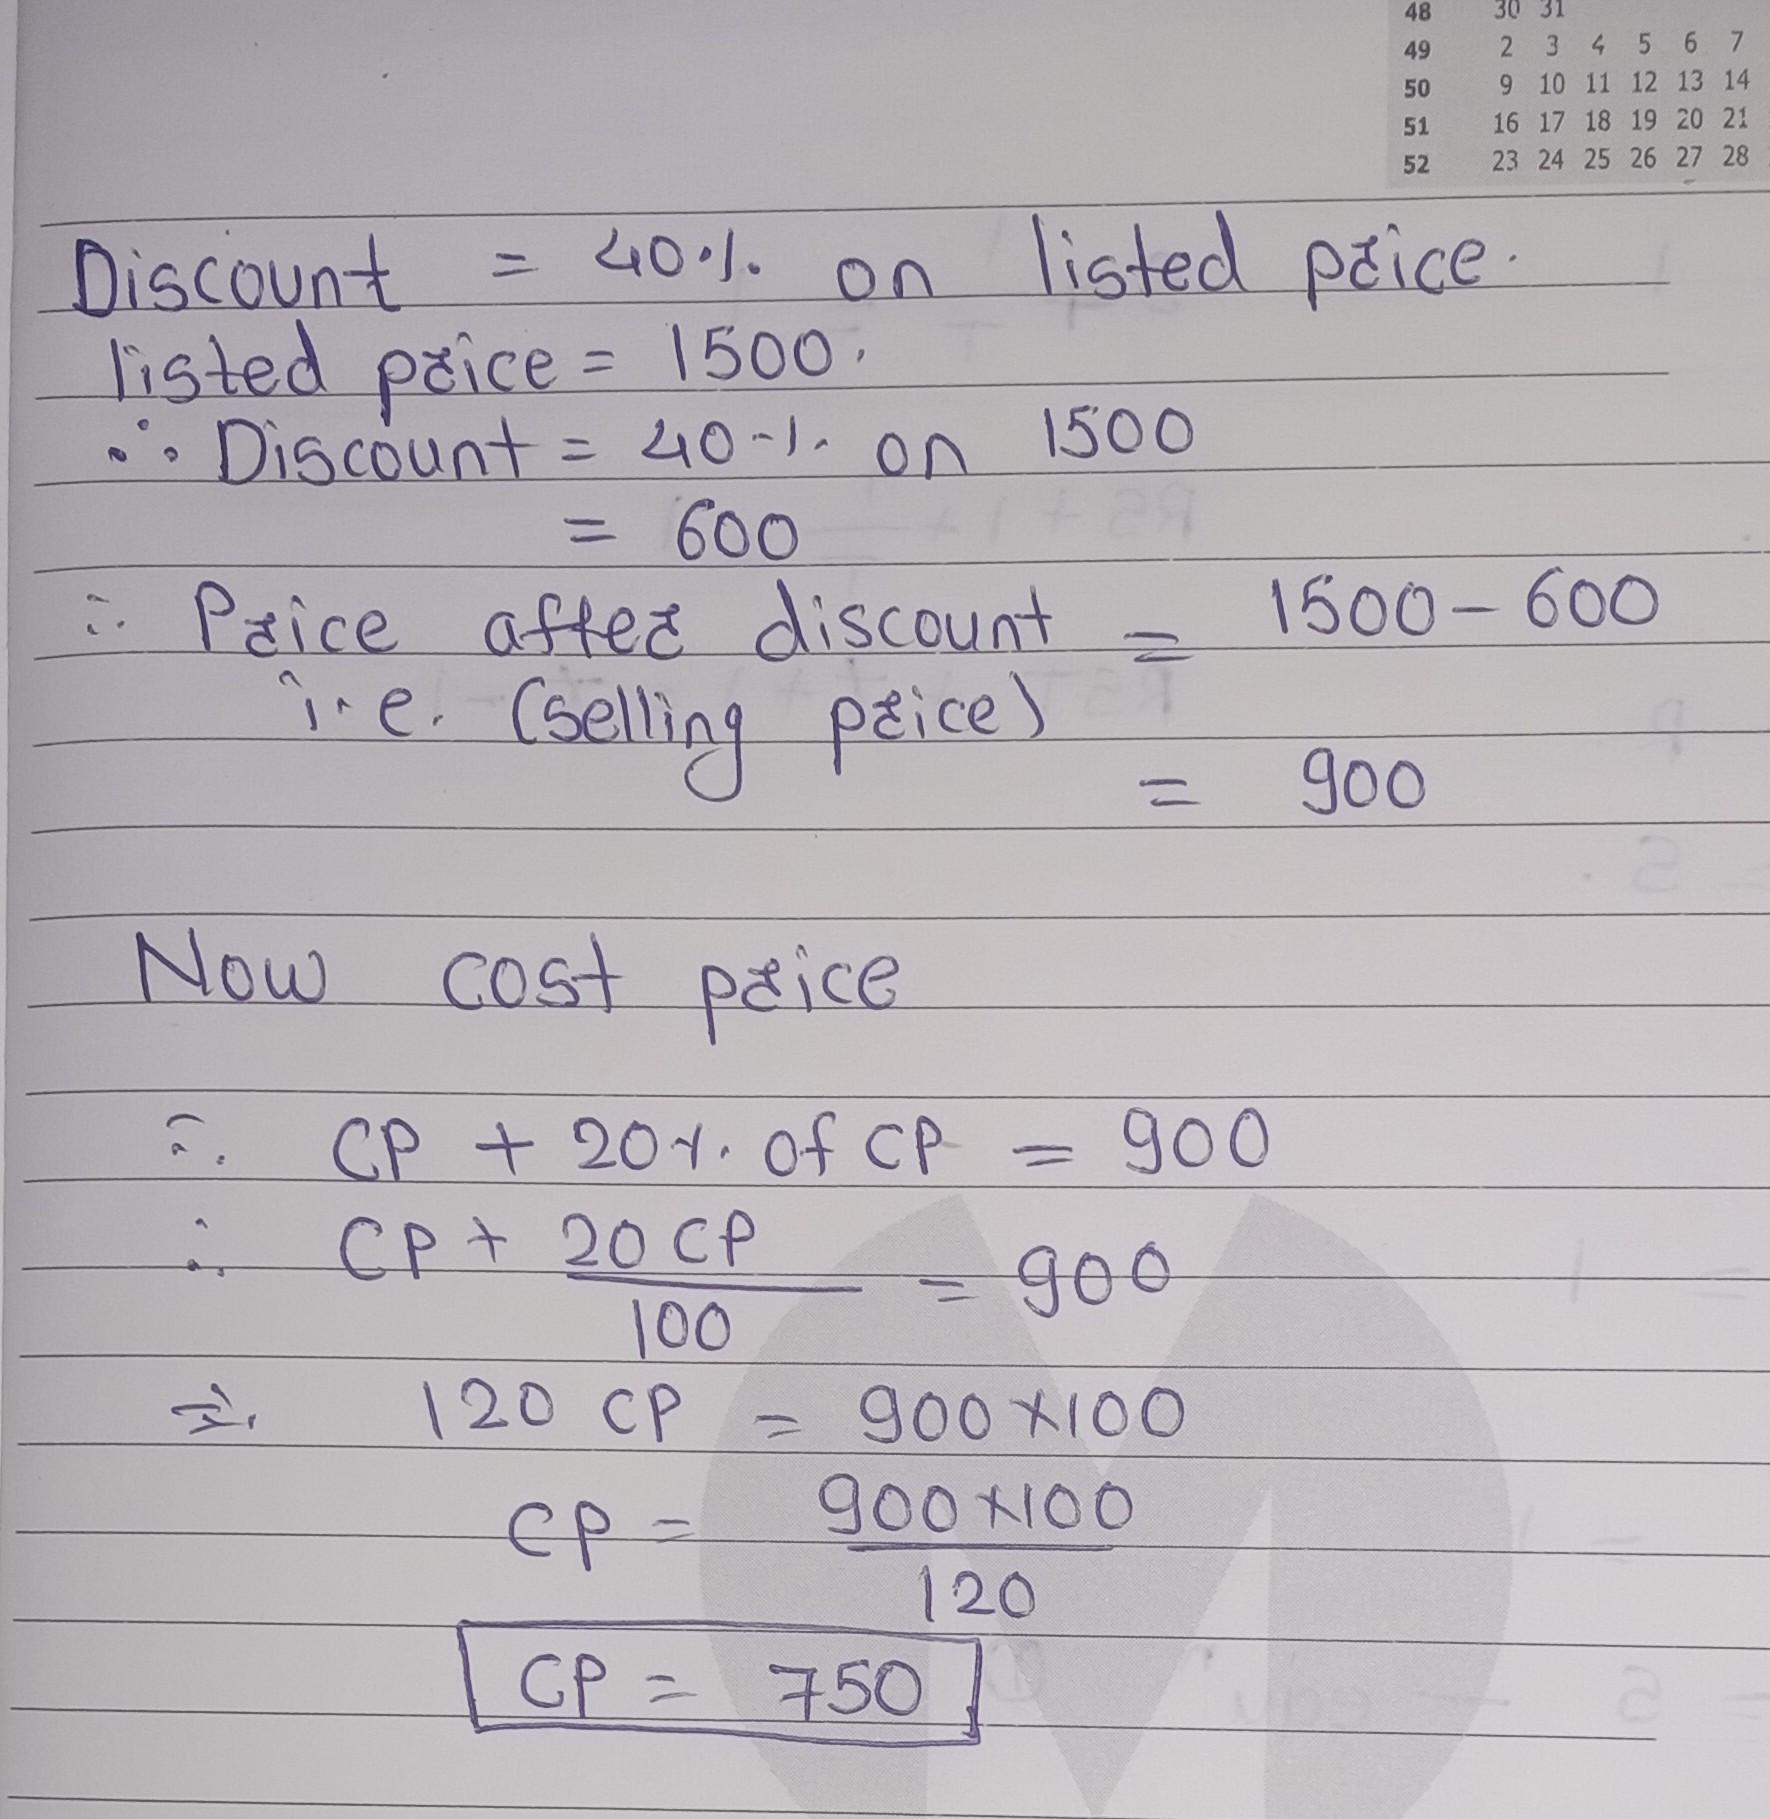 48 30 31
49 2 3 4 5 6 7
50 9 10 11 12 13 14
51 16 17 18 19 20 21
52 23 24 25 26 27 28
Discount = 40% on listed price.
listed price = 1500.
∴ Discount = 40% on 1500
= 600
∴ Price after discount = 1500 - 600
i.e. (selling price)
= 900
Now cost price
∴ CP + 20% of CP = 900
∴ CP + 20 CP / 100 = 900
⇒ 120 CP = 900 × 100
CP = 900 × 100 / 120
CP = 750